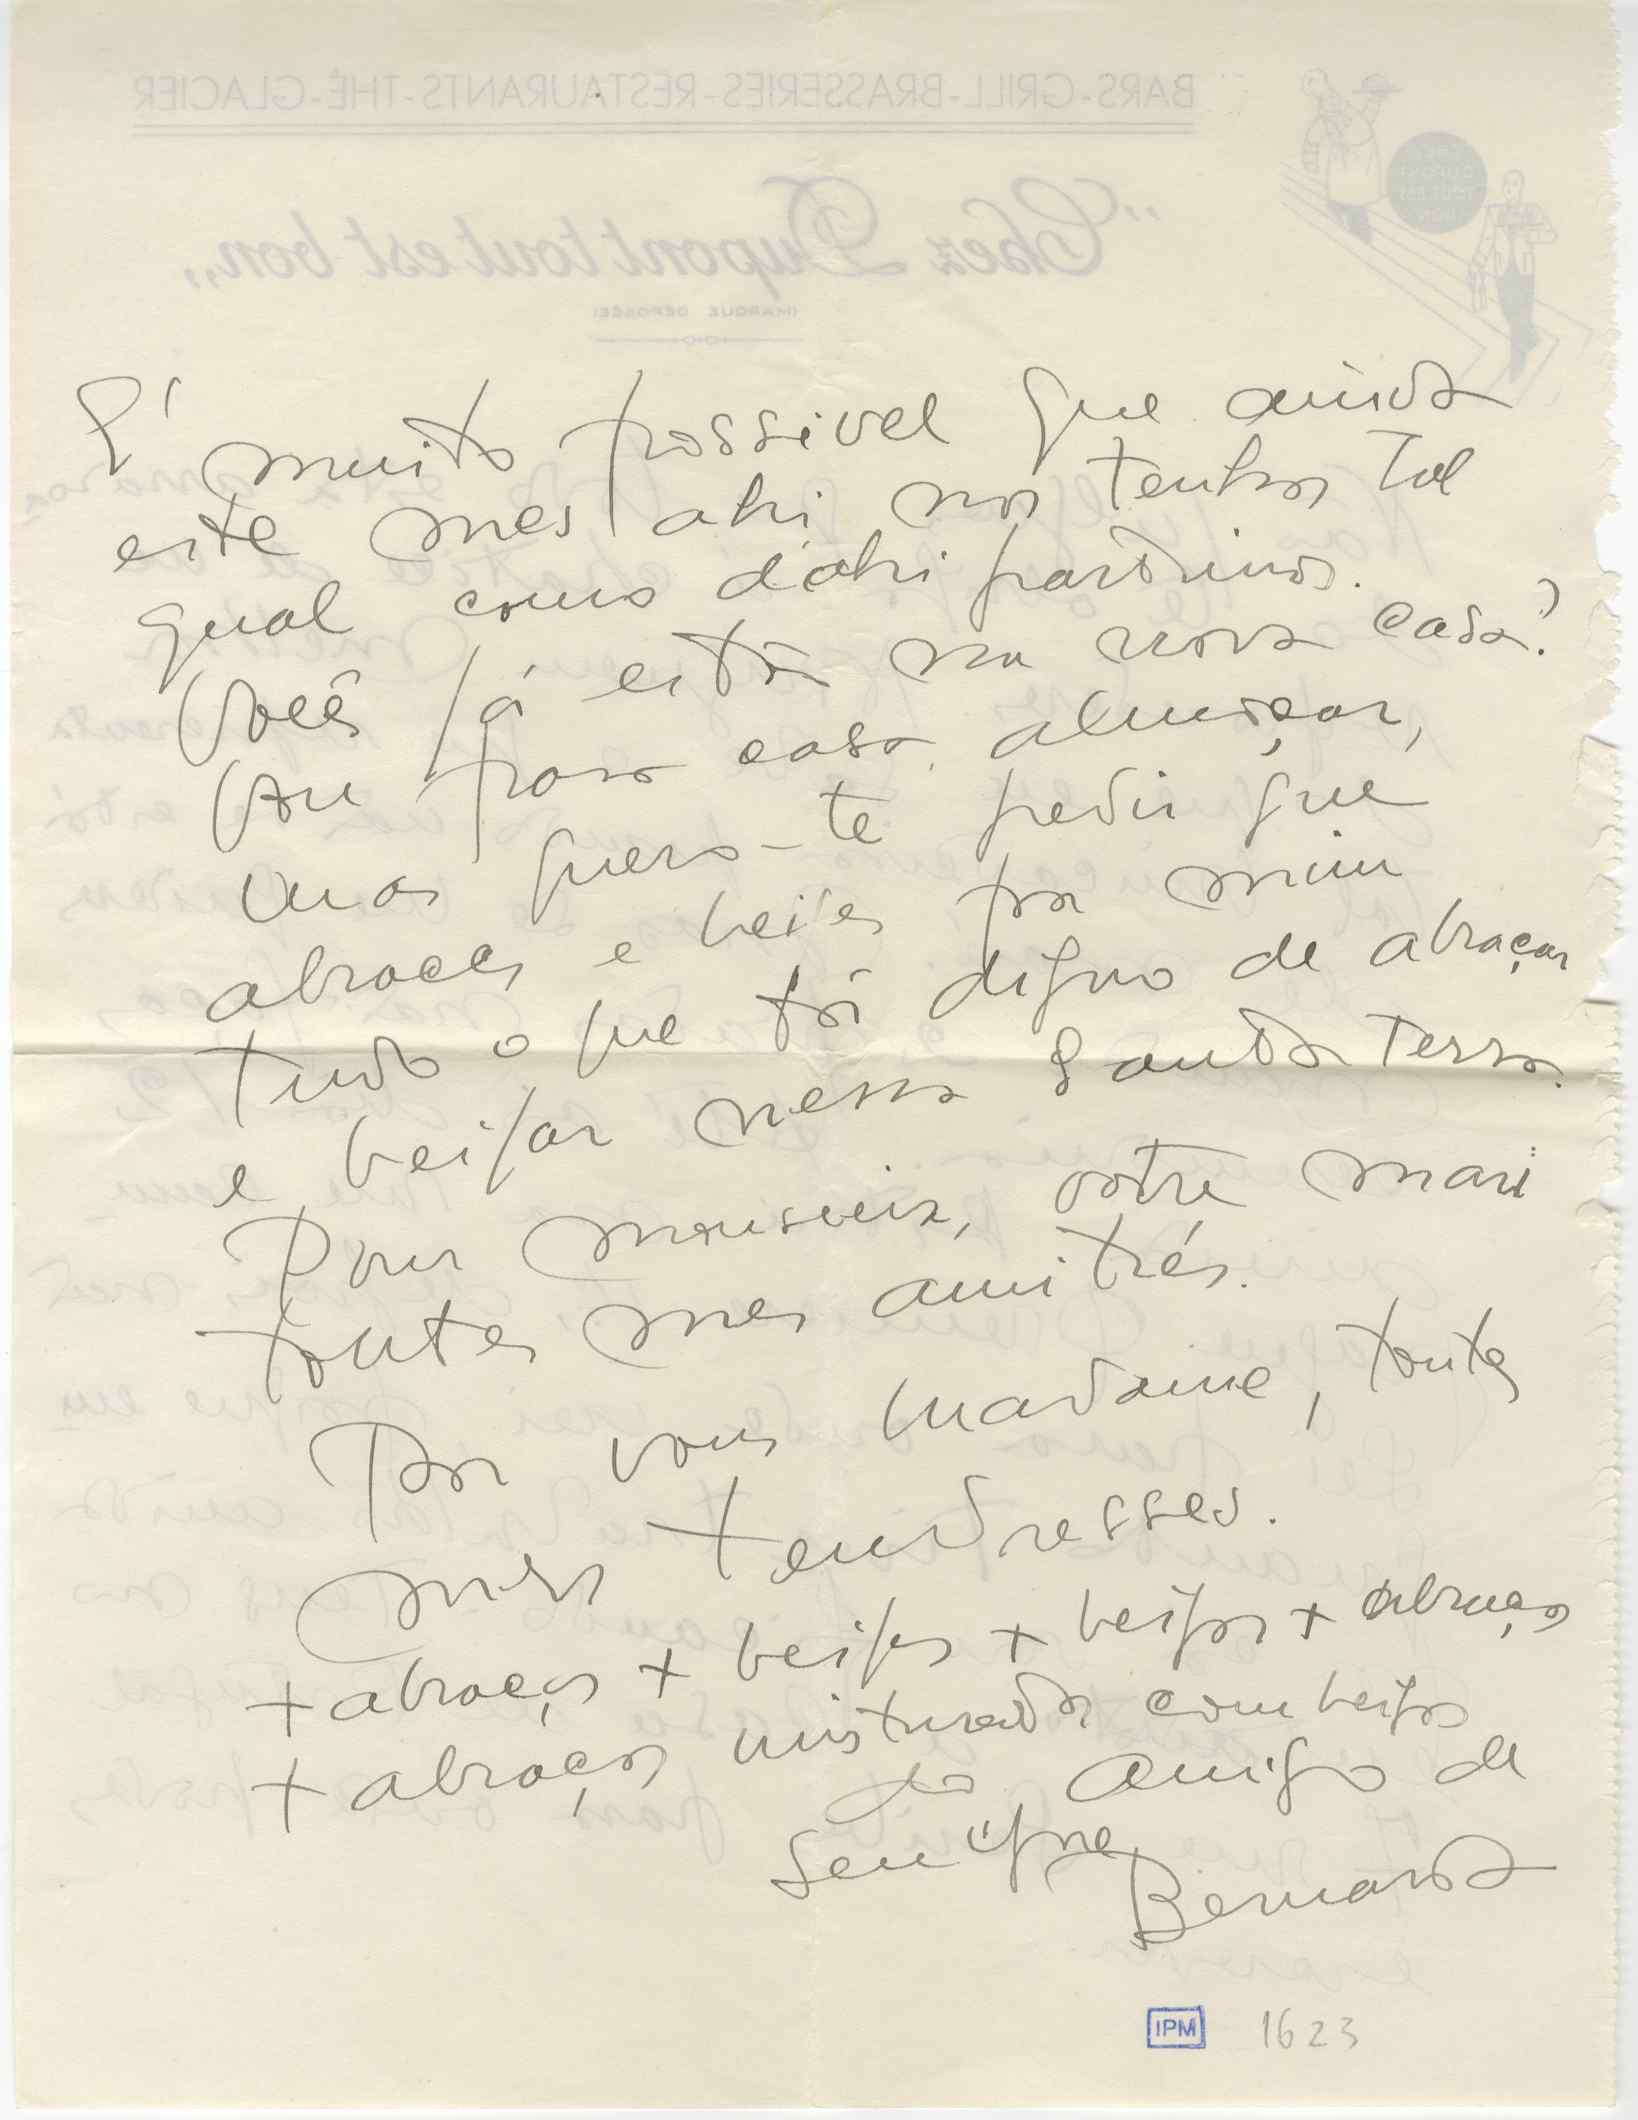 BARS-GRILL-BRASSERIES-RESTAURANTS-THÉ-GLACIER
"Chez Dupont tout est bon"
(MARQUE DÉPOSÉE)
CHEZ DUPONT TOUT EST BON
E' muito possivel que ainda
este mes ahi nos tenhas tal
qual como d'ahi partimos.
Você já está na nova casa?
Vou para casa almoçar,
mas quero-te pedir que
abraces e beijes por mim
tudo o que fôr digno de abraçar
e beijar nessa santa terra.
Pour monsieur, votre mari
toutes mes amitiés.
Por vous madame, toutes
mes tendresses.
+ abraços + beijos + beijos + abraços
+ abraços misturados com beijos
do amigo de
sempre
Bernardo
IPM 1623